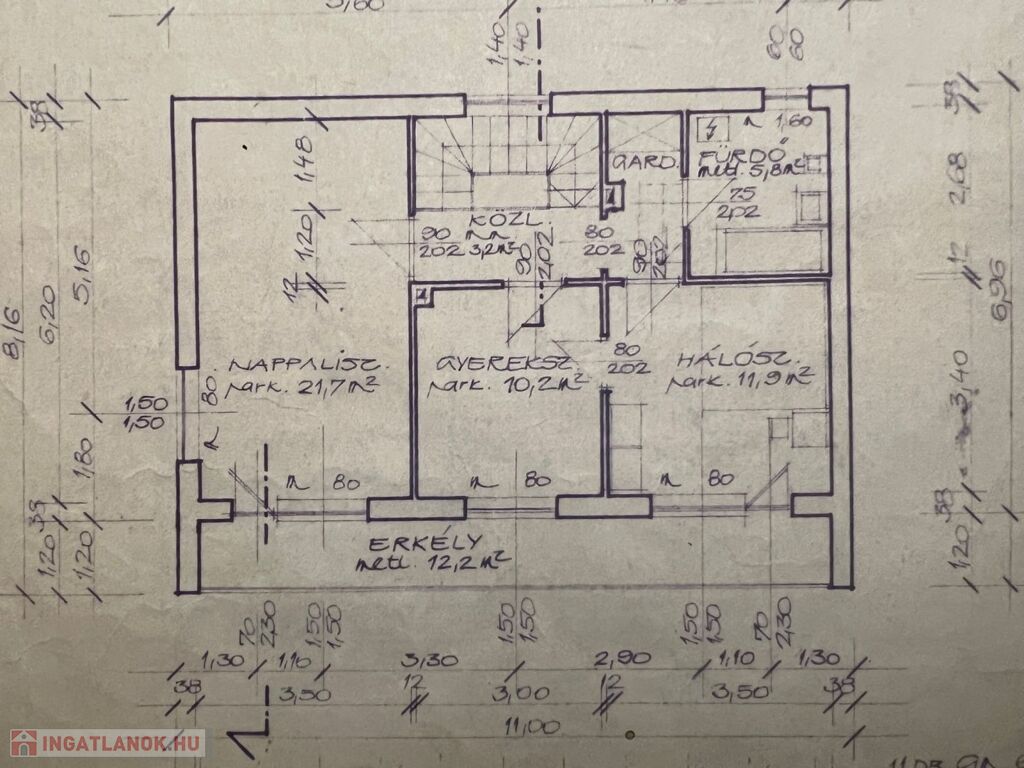 5,60
1,40
1,40
60
60
38
1,48
1,20
12
GARD.
FÜRDŐ
metl. 5,8 m²
m 1,60
75
202
KÖZL.
3,2 m²
90
202
80
202
90
202
90
202
38
2,68
12
3,40
6,96
38
1,20
8,16
6,20
5,16
1,80
38
1,20
1,20
1,50
1,50
m 80
NAPPALISZ.
park. 21,7 m²
GYEREKSZ.
park. 10,2 m²
80
202
HÁLÓSZ.
park. 11,9 m²
m 80
m 80
m 80
ERKÉLY
metl. 12,2 m²
70
2,30
1,50
1,50
1,50
1,50
1,50
1,50
70
2,30
1,30 1,10 3,30 2,90 1,10 1,30
38 3,50 12 3,00 12 3,50 38
11,00
INGATLANOK.HU